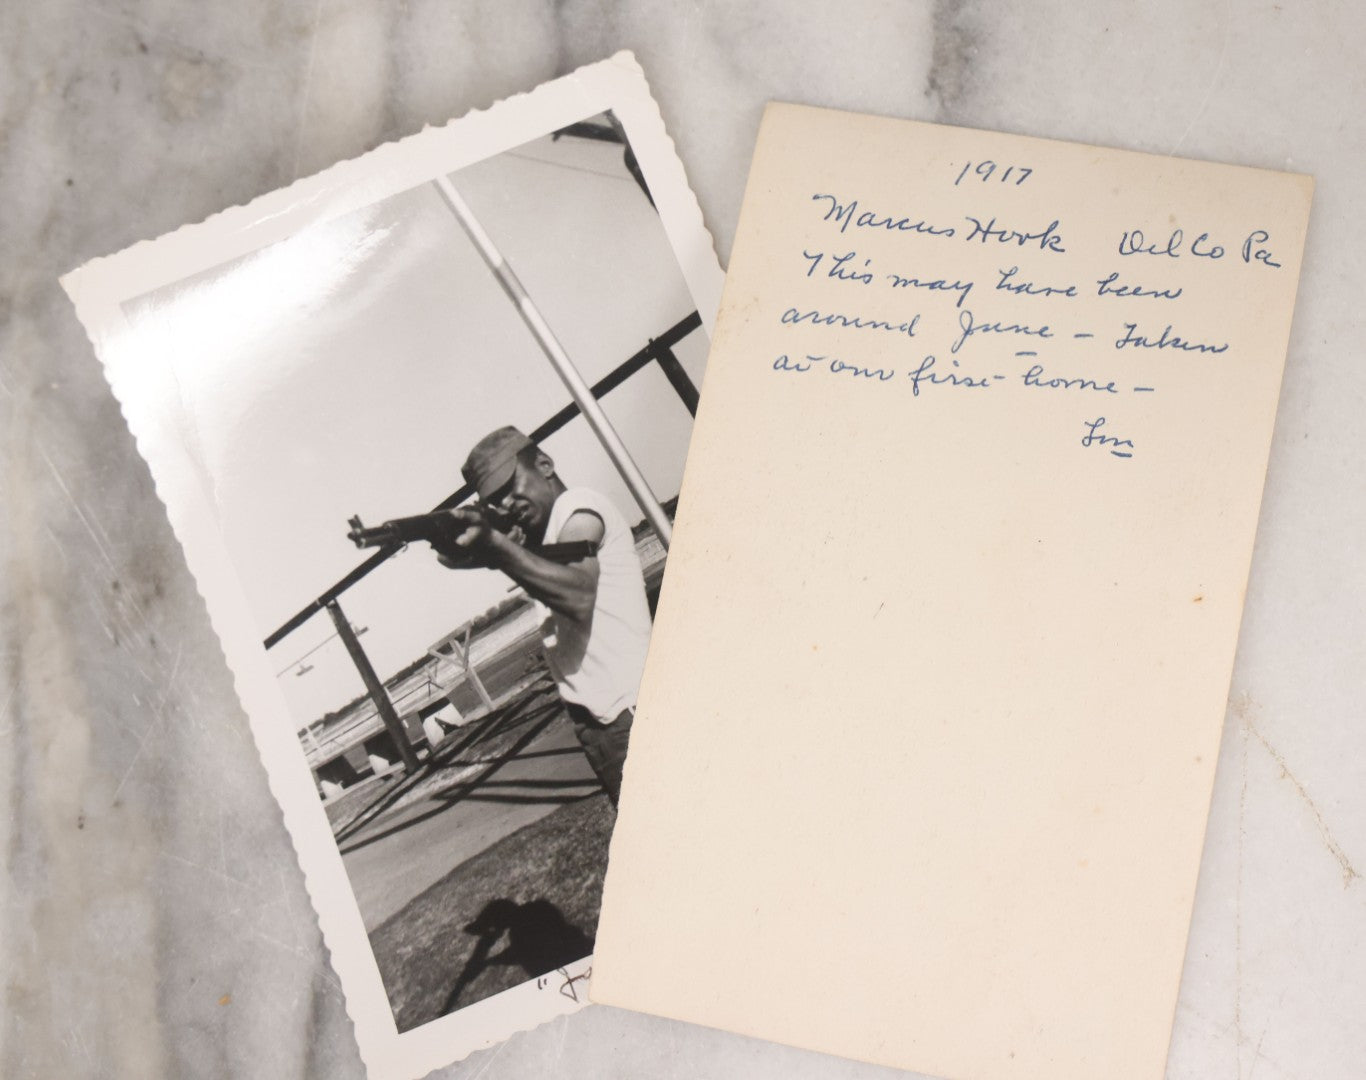 1917
Marcus Hook Del Co Pa
This may have been
around June – Taken
at our first home –
"Jo